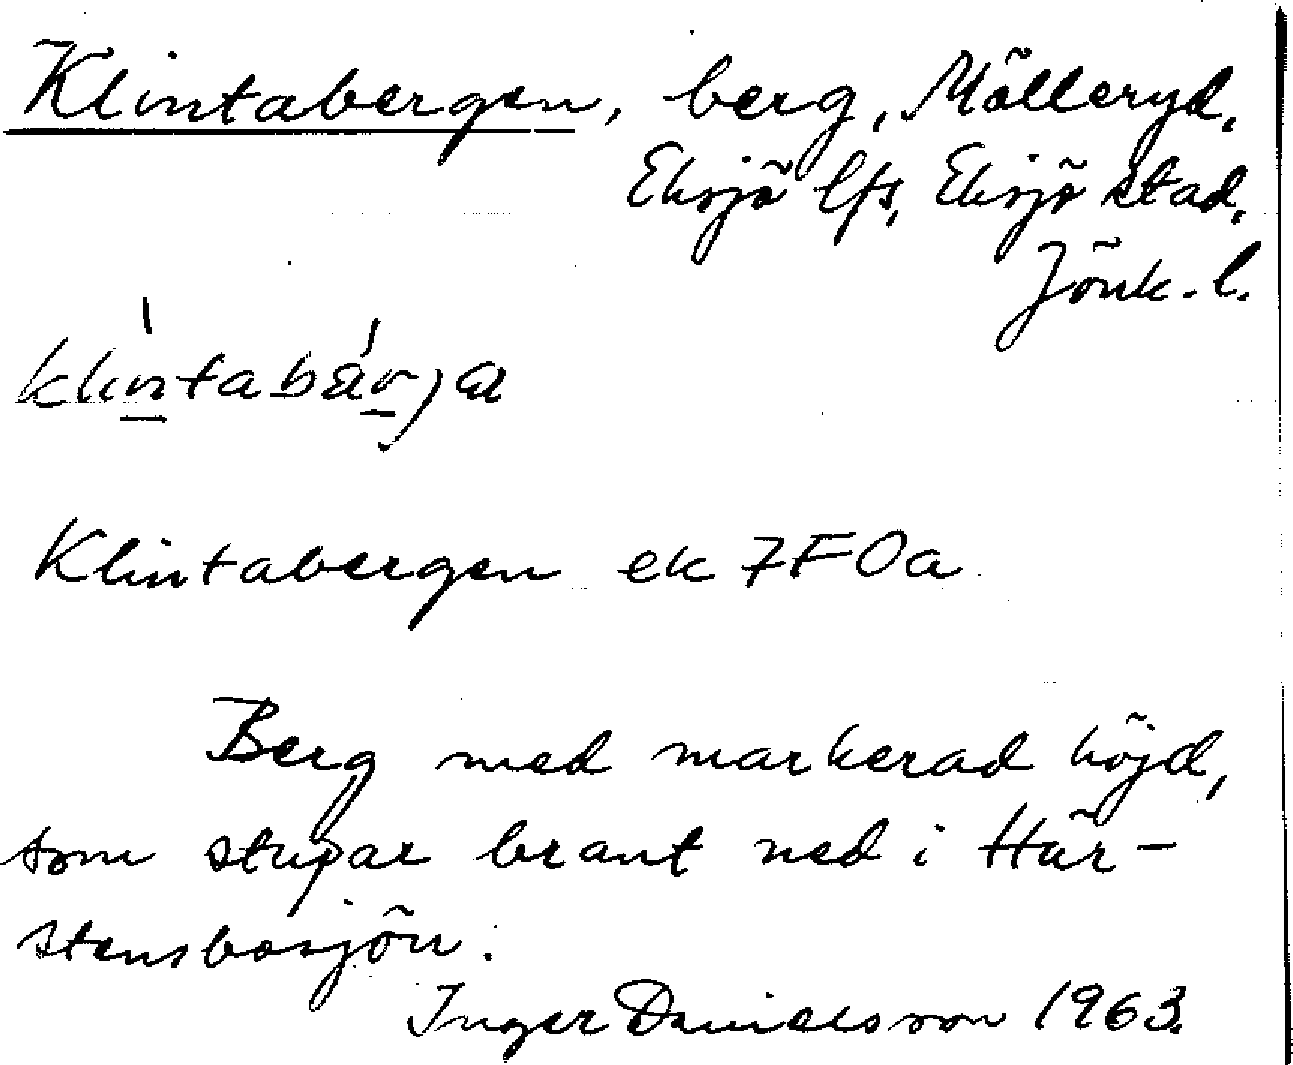 Klintabergen, berg, Mölleryd,
Eksjö lfs, Eksjö stad,
Jönk. l.
Klintabergen ek 7F0a
Berg med markerad höjd,
som stupar brant ned i Här-
stensbosjön.
Inger Danielsson 1963.